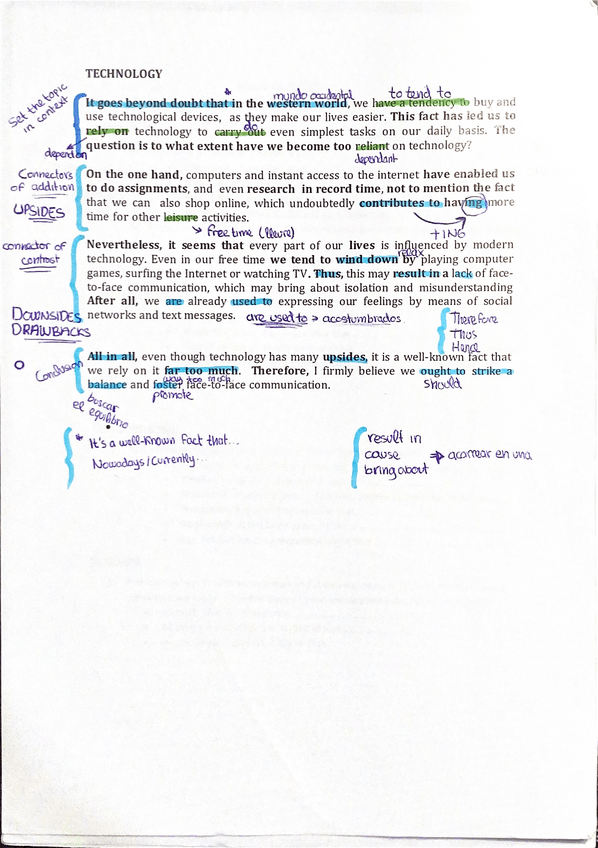 TECHNOLOGY
*
mundo occidental
to tend to
Set the topic
in context
It goes beyond doubt that in the western world, we have a tendency to buy and
use technological devices, as they make our lives easier. This fact has led us to
do
rely on technology to carry out even simplest tasks on our daily basis. The
depend on
question is to what extent have we become too reliant on technology?
dependant
Connectors
of addition
UPSIDES
On the one hand, computers and instant access to the internet have enabled us
to do assignments, and even research in record time, not to mention the fact
that we can also shop online, which undoubtedly contributes to having more
time for other leisure activities.
free time (lleure)
+ING
connector of
contrast
Nevertheless, it seems that every part of our lives is influenced by modern
relax
technology. Even in our free time we tend to wind down by playing computer
games, surfing the Internet or watching TV. Thus, this may result in a lack of face-
to-face communication, which may bring about isolation and misunderstanding
After all, we are already used to expressing our feelings by means of social
networks and text messages.
are used to → acostumbrados
DOWNSIDES
DRAWBACKS
Therefore
Thus
Hence
Conclusion
All in all, even though technology has many upsides, it is a well-known fact that
we rely on it far too much. Therefore, I firmly believe we ought to strike a
way too much
should
balance and foster face-to-face communication.
promote
buscar
el equilibrio
* It's a well-known fact that...
Nowadays / Currently...
result in
cause
bring about
→ acarrear en una